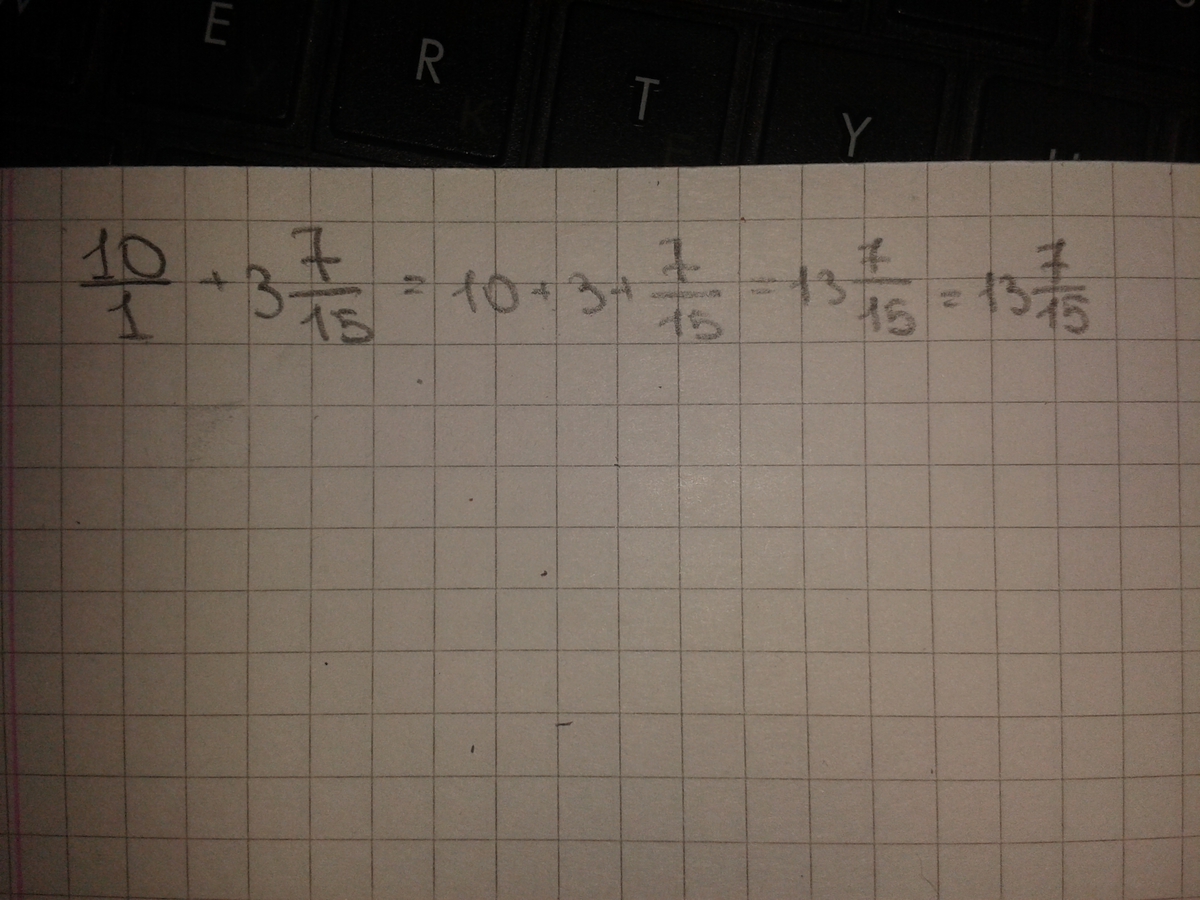 E R T Y
10/1 + 3 7/15 = 10 + 3 + 7/15 = 13 7/15 = 13 7/15